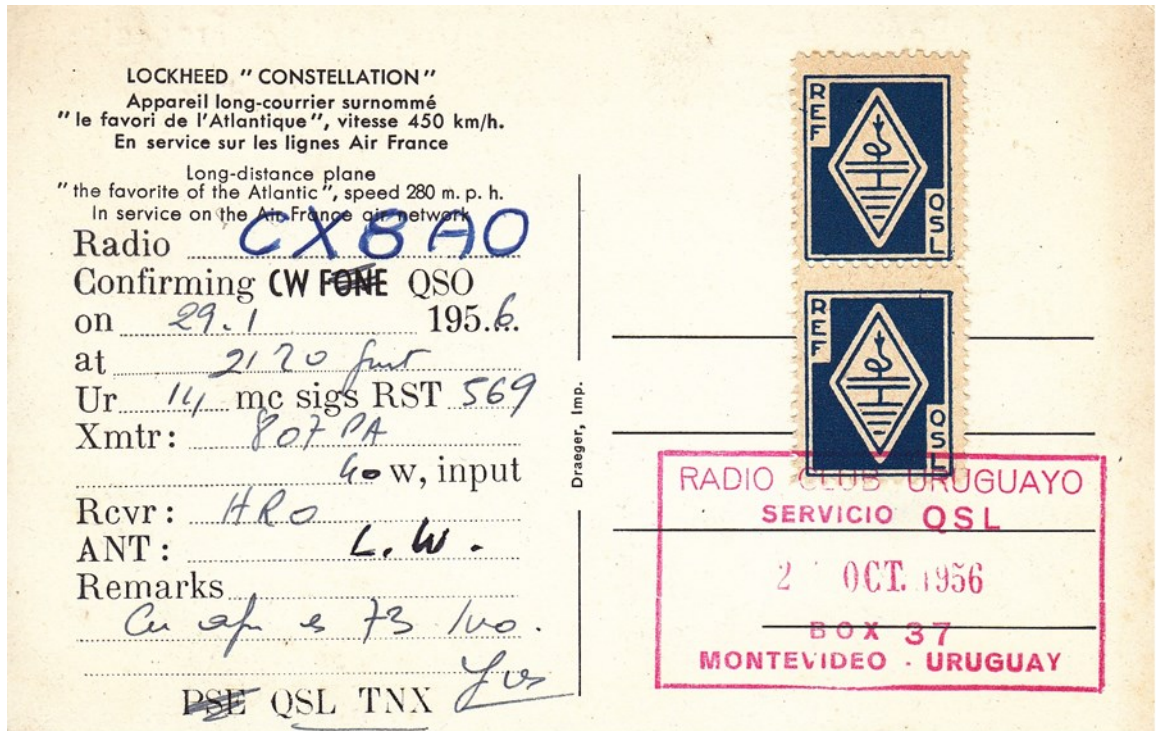 LOCKHEED "CONSTELLATION"
Appareil long-courrier surnommé
"le favori de l'Atlantique", vitesse 450 km/h.
En service sur les lignes Air France
Long-distance plane
"the favorite of the Atlantic", speed 280 m. p. h.
In service on the Air France air network
Radio CX8AO
Confirming CW FONE QSO
on 29.1 1956.
at 2120 gmt
Ur 14 mc sigs RST 569
Xmtr: 807 PA
40 w, input
Rcvr: HRO
ANT: L. W.
Remarks
Cu 73
Yves
PSE QSL TNX
Draeger, Imp.
REF
QSL
REF
QSL
RADIO CLUB URUGUAYO
SERVICIO QSL
2 OCT. 1956
BOX 37
MONTEVIDEO - URUGUAY